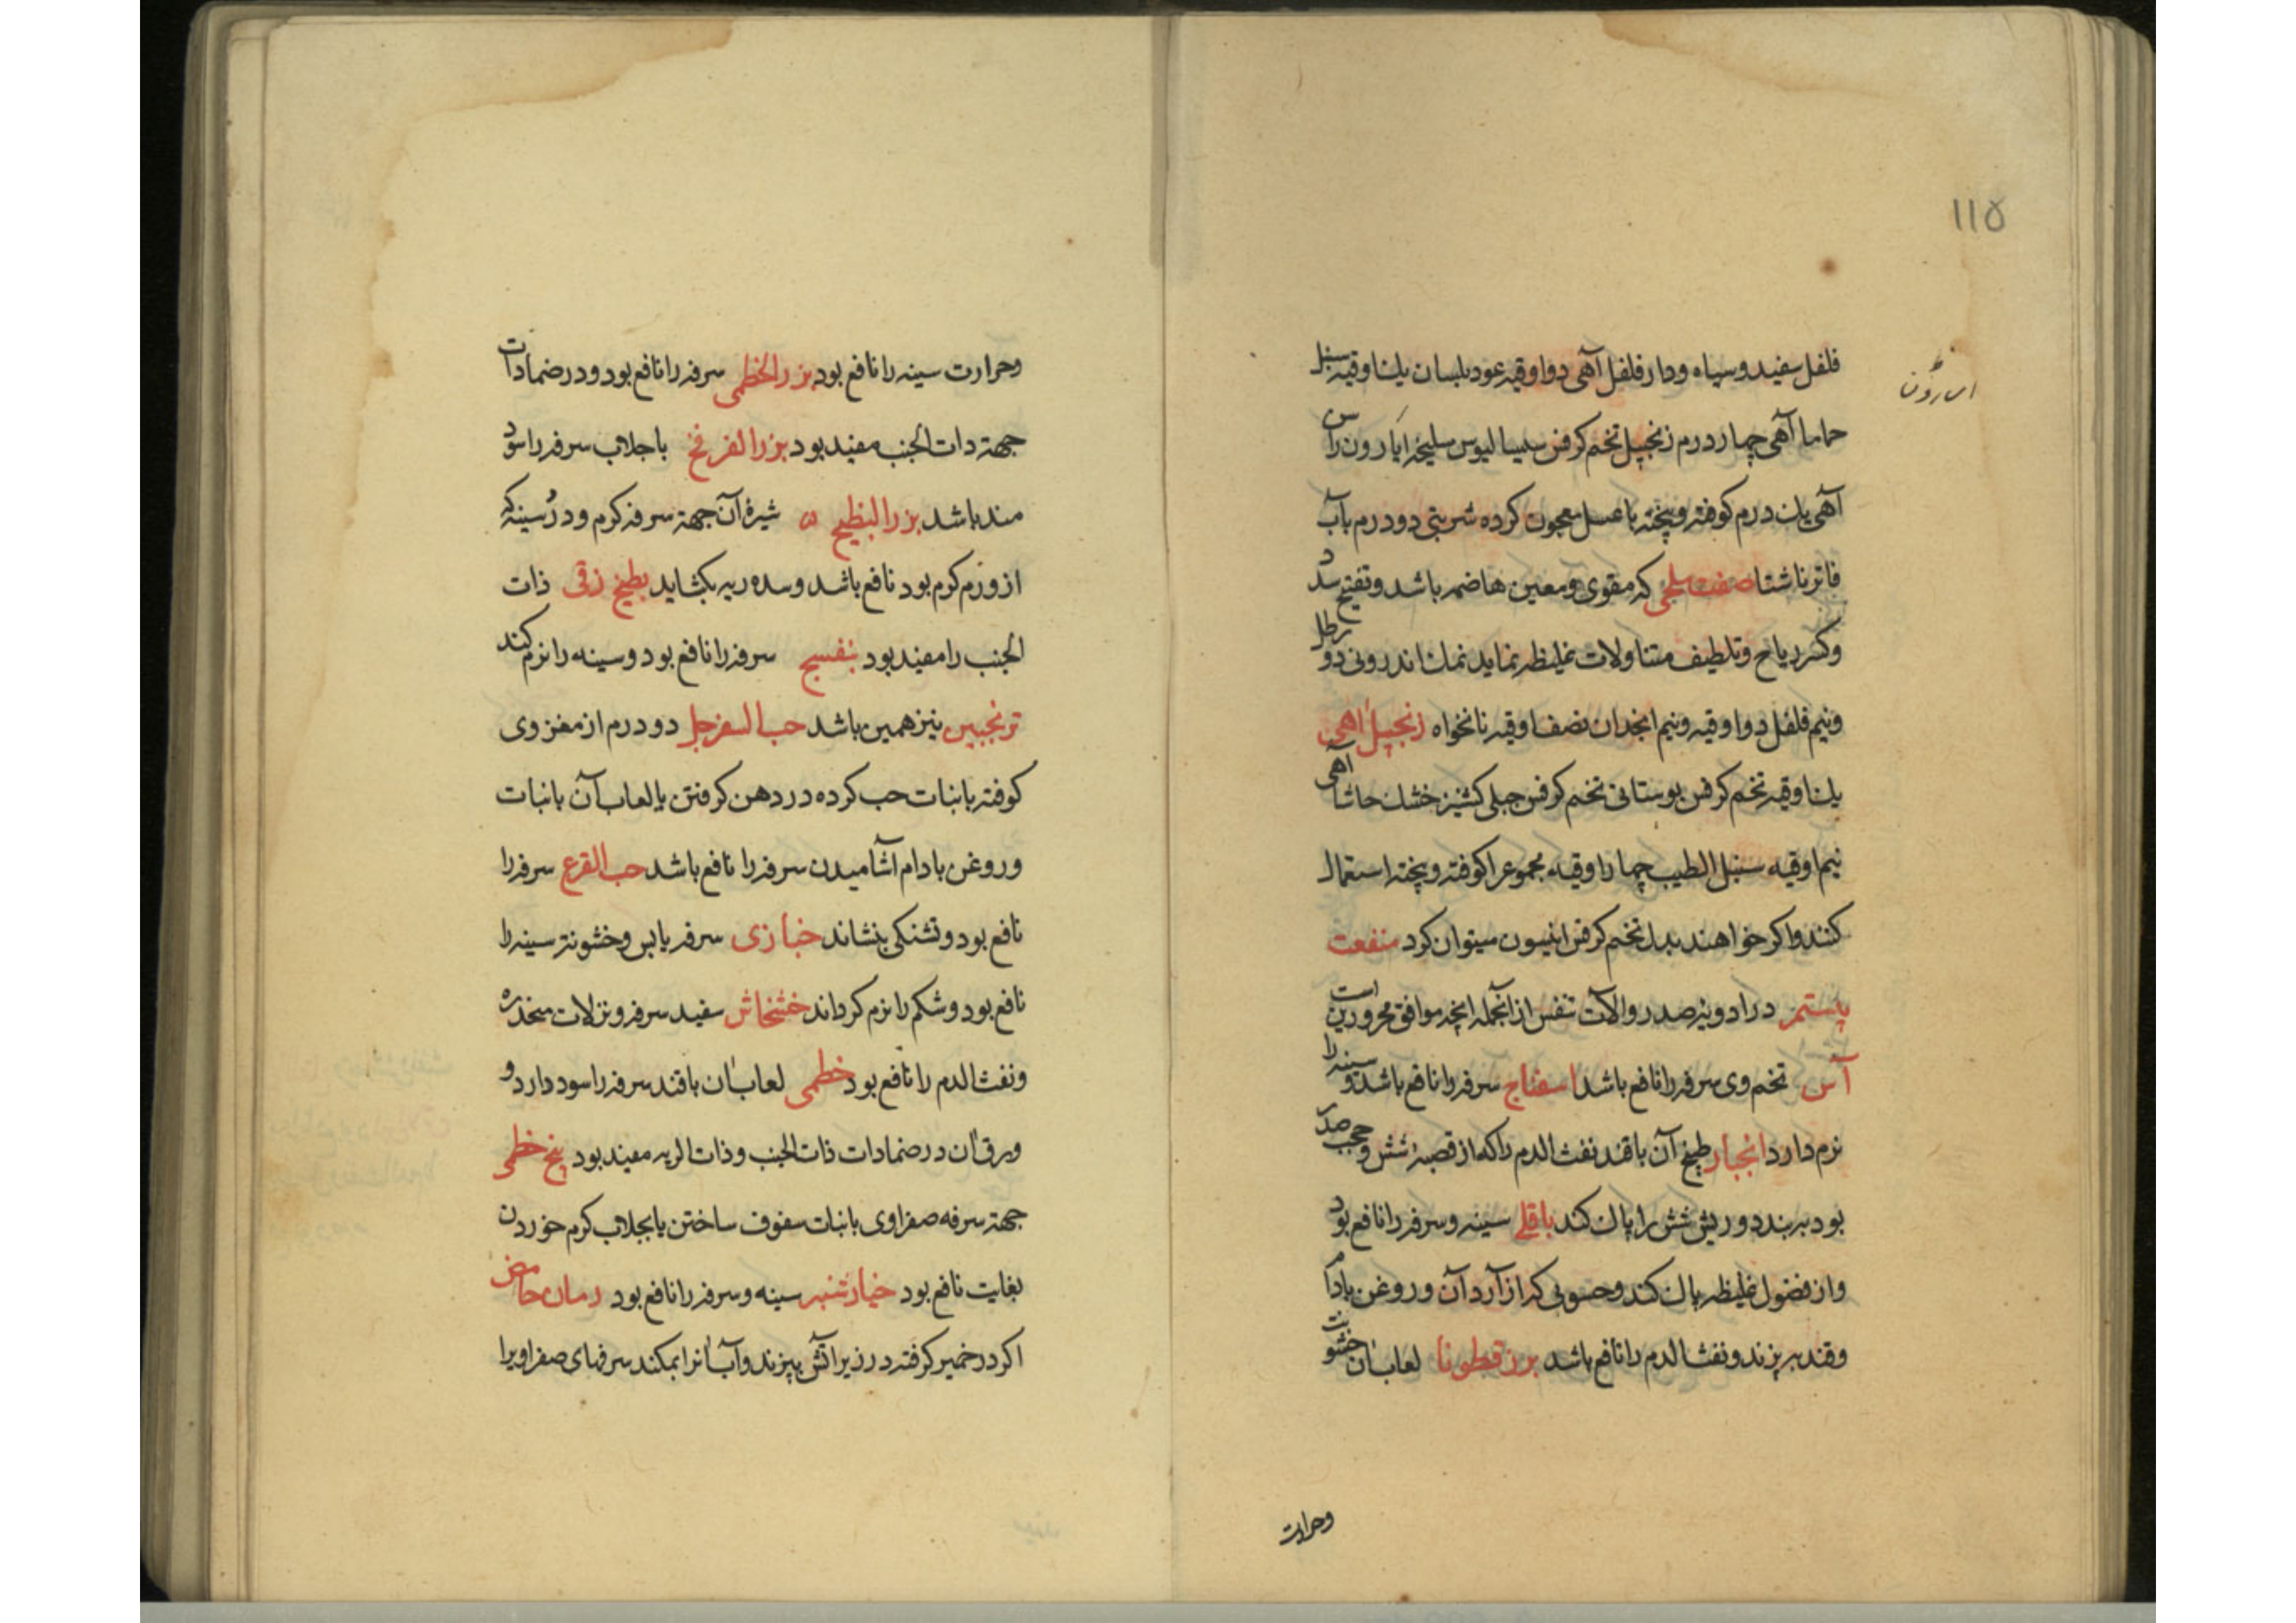 115
فلفل سفید و سیاه و دار فلفل آهی دو اوقیه عود بلسان یك اوقیه سنبل
اسارون
حاما آهی چهار درم زنجبیل تخم کرفس سیسالیوس سلیخه اسارون راسن
آهی یك درم کوفته و پخته با عسل معجون کرده شربتی دو درم بآب
فاتر ناشتا صفت ملحی که مقوی و معین هاضمه باشد و تفتیح سدد
وکسر ریاح و تلطیف متناولات غلیظه نماید نمك اندرونی دو رطل
ونیم فلفل دو اوقیه ونیم انجدان نصف اوقیه نانخواه زنجبیل آهی
یك اوقیه تخم کرفس بوستانی تخم کرفس جبلی کشنیز خشك حاشا آهی
نیم اوقیه سنبل الطیب چهار اوقیه مجموع را کوفته و پخته استعمال
کنند واکر خواهند بدل تخم کرفس انیسون میتوان کرد منفعت
پستم در ادویه صدر والات تنفس از آنجمله انچه موافق محرورین است
آس تخم وی سرفه را نافع باشد اسفناج سرفه را نافع باشد و سینه را
نرم دارد انجبار طبیخ آن با قند نفث الدم را که از قصبه شش و حجب صدر
بود ببندد و ریش شش را پاك کند باقلی سینه و سرفه را نافع بود
واز فضول غلیظه پاك کند وحسوی که از آرد آن و روغن بادام
وقند بپزند و نفث الدم را نافع باشد بزر قطونا لعاب ان خشونت
وحرارت
وحرارت سینه را نافع بود بزر الخطمی سرفه را نافع بود و در ضمادات
جهة ذات الجنب مفید بود بزر الفرفخ با جلاب سرفه را سود
مند باشد بزر البطیخ شیرۀ آن جهة سرفه کرم و درد سینه که
از ورم کرم بود نافع باشد و سده ریه بکشاید بطیخ زقی ذات
الجنب را مفید بود بنفسج سرفه را نافع بود و سینه را نرم کند
ترنجبین نیز همین باشد حب السفرجل دو درم از مغز وی
کوفته با نبات حب کرده در دهن کرفتن یا لعاب آن با نبات
و روغن بادام آشامیدن سرفه را نافع باشد حب القرع سرفه را
نافع بود و تشنکی بنشاند خبازی سرفه یابس و خشونة سینه را
نافع بود و شکم را نرم کرداند خشخاش سفید سرفه و نزلات منحدره
ونفث الدم را نافع بود خطمی لعاب ان با قند سرفه را سود دارد و
ورق ان در ضمادات ذات الجنب و ذات الریه مفید بود بیخ خطمی
جهة سرفه صفراوی با نبات سفوف ساختن یا بجلاب کرم خوردن
بغایت نافع بود خیار شنبر سینه و سرفه را نافع بود رمان حامض
اکر در خمیر کرفته در زیر آتش بپزند و آب انرا بمکند سرفهای صفراویرا